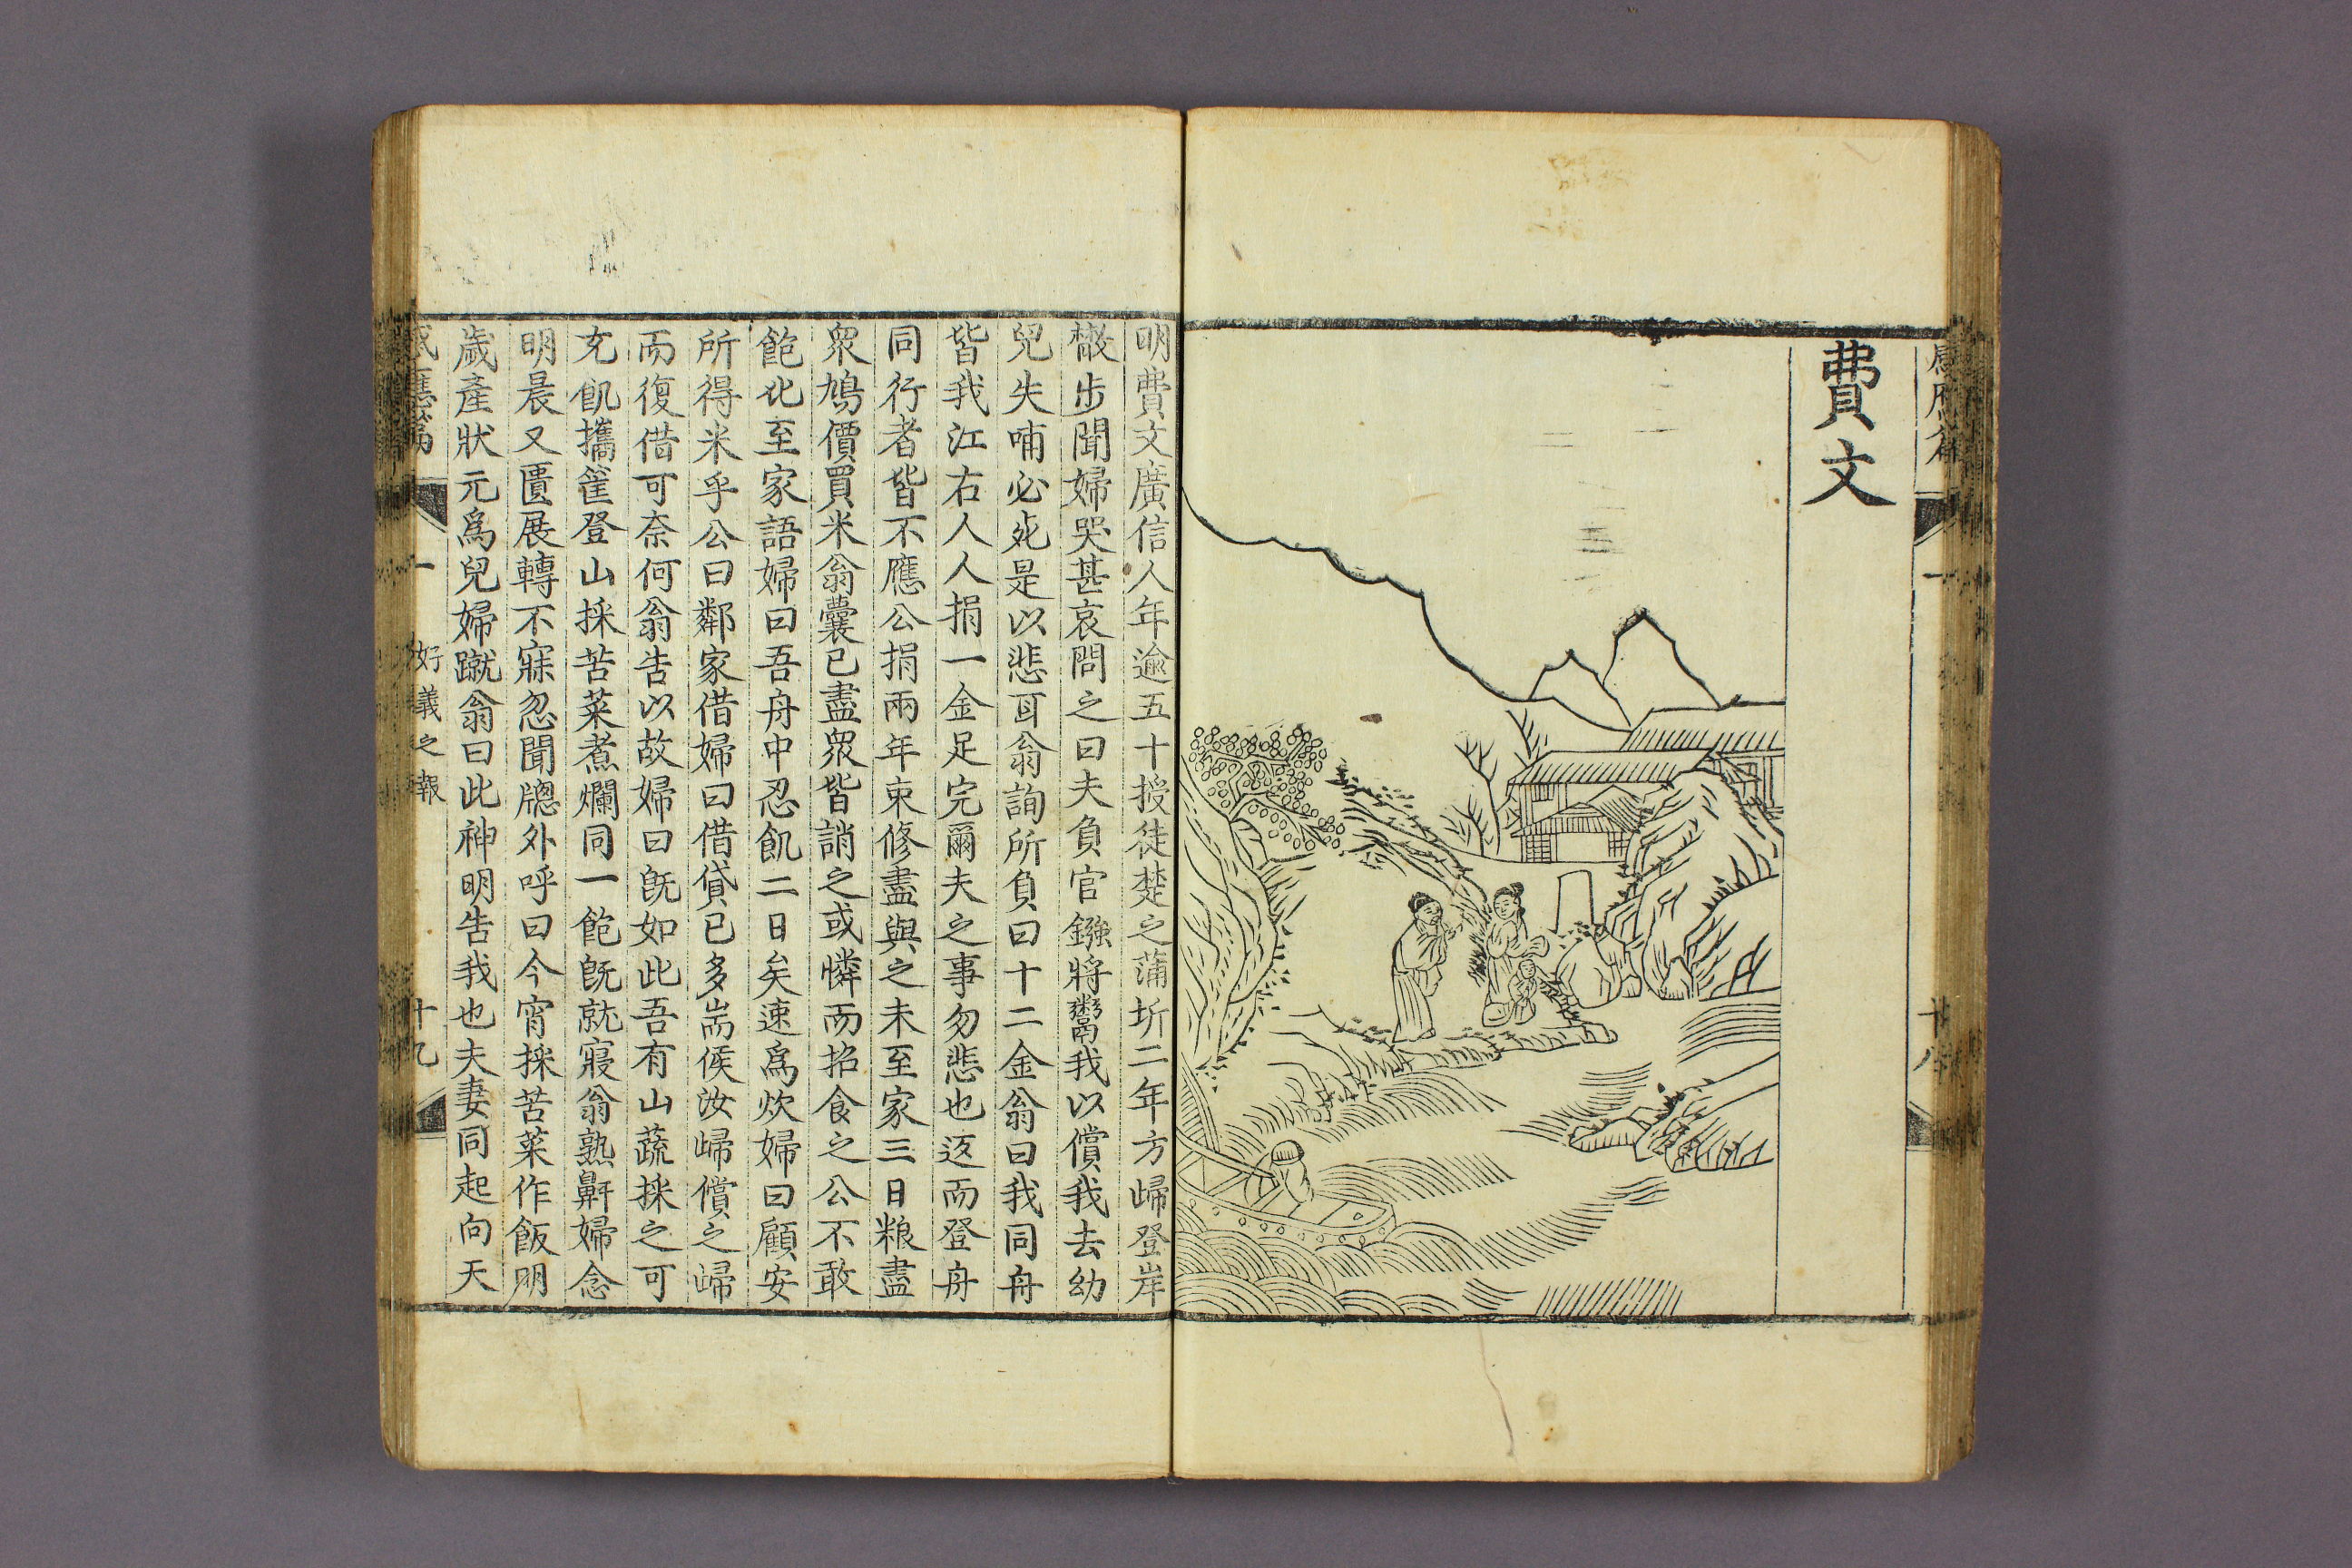 費文
明費文廣信人年逾五十授徒楚之蒲圻二年方歸登岸
散步聞婦哭甚哀問之曰夫負官鏹將鬻我以償我去幼
兒失哺必死是以悲耳翁詢所負曰十二金翁曰我同舟
皆我江右人人捐一金足完爾夫之事勿悲也返而登舟
同行者皆不應公捐兩年束修盡與之未至家三日粮盡
衆鳩價買米翁囊已盡衆皆誚之或憐而招食之公不敢
飽比至家語婦曰吾舟中忍飢二日矣速爲炊婦曰顧安
所得米乎公曰鄰家借婦曰借貸已多耑候汝歸償之歸
而復借可奈何翁告以故婦曰旣如此吾有山蔬採之可
充飢攜筐登山採苦菜煮爛同一飽旣就寢翁熟鼾婦念
明晨又匱展轉不寐忽聞牕外呼曰今宵採苦菜作飯明
歲產狀元爲兒婦蹴翁曰此神明告我也夫妻同起向天
感應篇 一 好義之報 十九